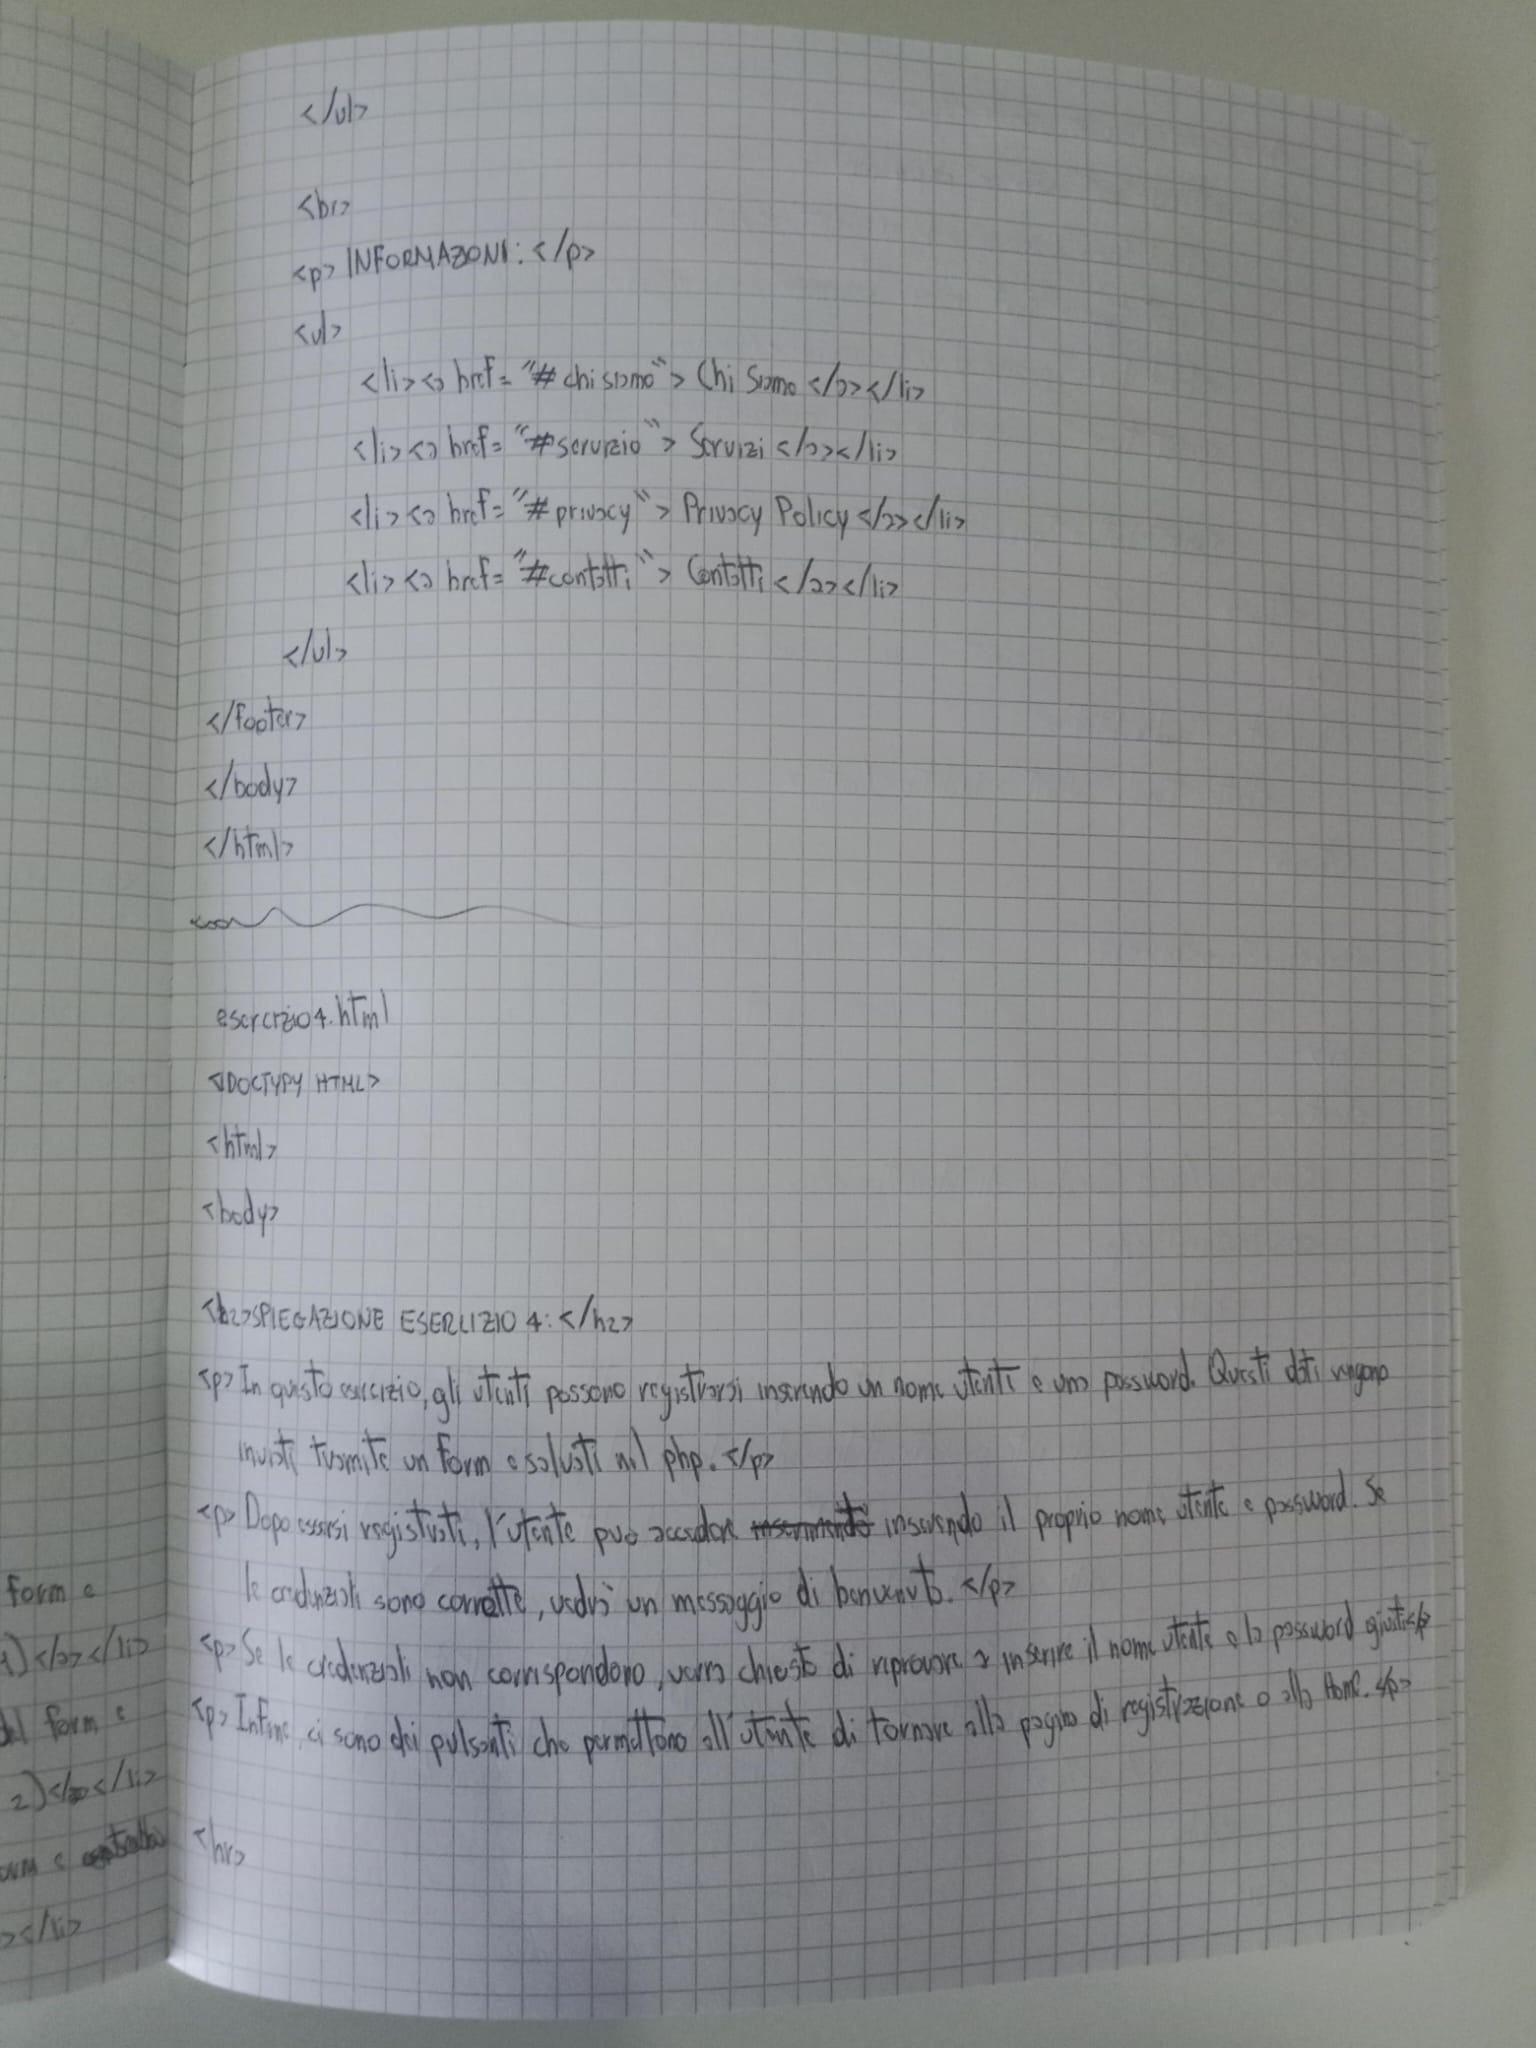 </ul>
<br>
<p> INFORMAZIONI: </p>
<ul>
<li><a href= "#chisiamo"> Chi Siamo </a></li>
<li><a href= "#servizio"> Servizi </a></li>
<li><a href= "#privacy"> Privacy Policy </a></li>
<li><a href= "#contatti"> Contatti </a></li>
</ul>
</footer>
</body>
</html>
esercizio4.html
<!DOCTYPY HTML>
<html>
<body>
<h2>SPIEGAZIONE ESERCIZIO 4:</h2>
<p> In questo esercizio, gli utenti possono registrarsi inserendo un nome utente e una password. Questi dati vengono
inviati tramite un form e salvati nel php. </p>
<p> Dopo essersi registrati, l'utente può accedere inserendo il proprio nome utente e password. Se
le credenziali sono corrette, vedrà un messaggio di benvenuto. </p>
<p> Se le credenziali non corrispondono, verra chiesto di riprovare a inserire il nome utente e la password giusti</p>
<p> Infine, ci sono dei pulsanti che permettono all'utente di tornare alla pagina di registrazione o alla Home. </p>
<hr>
form e
1)</a></li>
del form e
2)</a></li>
form e
></li>